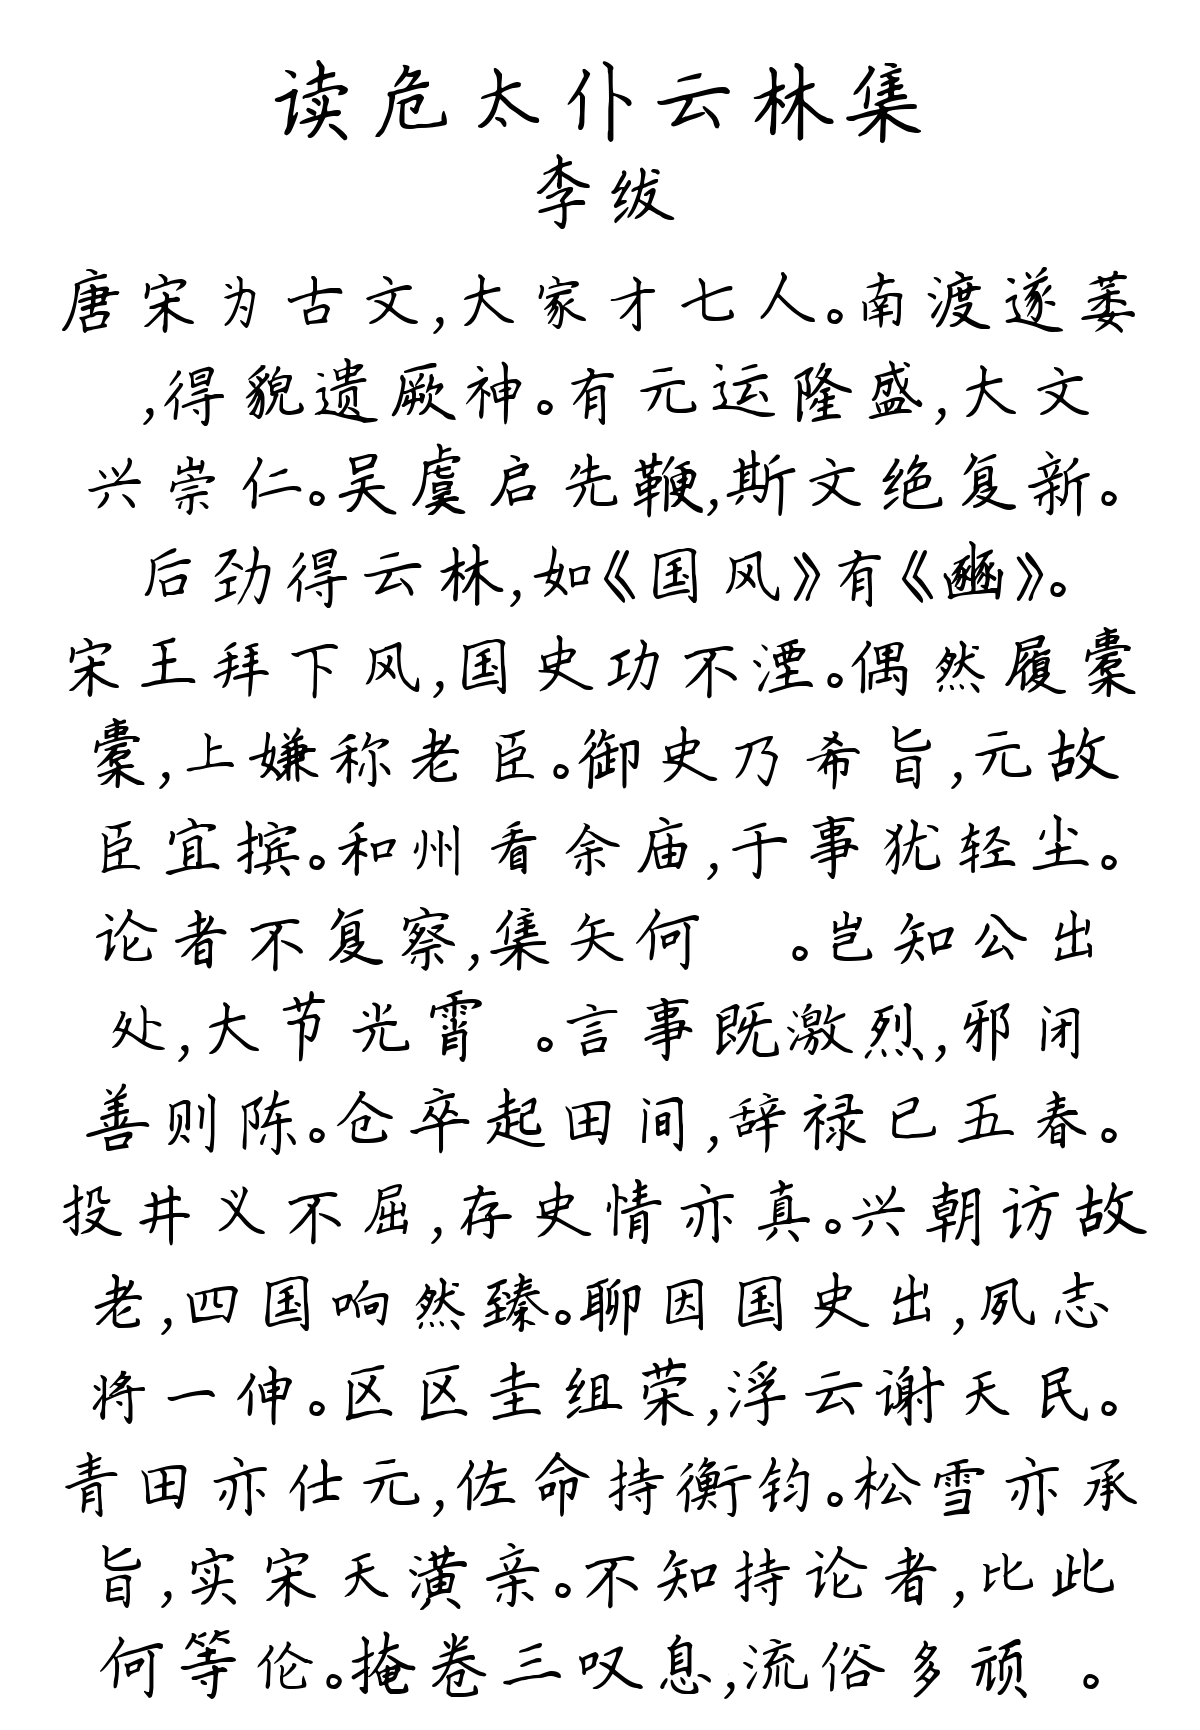 读危太仆云林集
李绂
唐宋为古文,大家才七人。南渡遂萎
,得貌遗厥神。有元运隆盛,大文
兴崇仁。吴虞启先鞭,斯文绝复新。
后劲得云林,如《国风》有《豳》。
宋王拜下风,国史功不湮。偶然履橐
橐,上嫌称老臣。御史乃希旨,元故
臣宜摈。和州看余庙,于事犹轻尘。
论者不复察,集矢何 。岂知公出
处,大节光霄 。言事既激烈,邪闭
善则陈。仓卒起田间,辞禄已五春。
投井义不屈,存史情亦真。兴朝访故
老,四国响然臻。聊因国史出,夙志
将一伸。区区圭组荣,浮云谢天民。
青田亦仕元,佐命持衡钧。松雪亦承
旨,实宋天潢亲。不知持论者,比此
何等伦。掩卷三叹息,流俗多顽 。